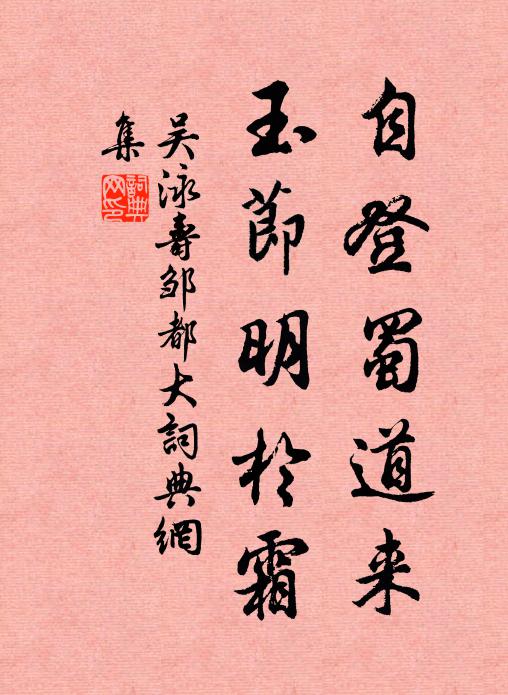 自登蜀道来
玉節明於霜
吴泳壽邹都大詞典網
集
詞典网印